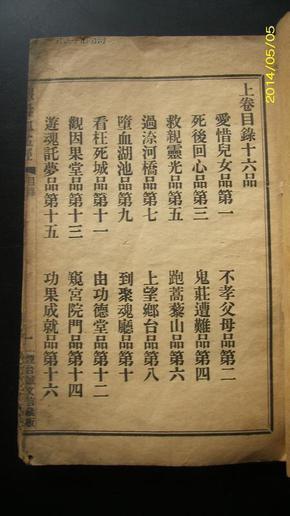 2014/05/05
上卷目錄十六品
愛惜兒女品第一
不孝父母品第二
死後回心品第三
鬼莊遭難品第四
救親靈光品第五
跑蒿藜山品第六
過渿河橋品第七
上望鄉台品第八
墮血湖池品第九
到聚魂廳品第十
看枉死城品第十一
由功德堂品第十二
觀因果堂品第十三
窺宮院門品第十四
遊魂託夢品第十五
功果成就品第十六